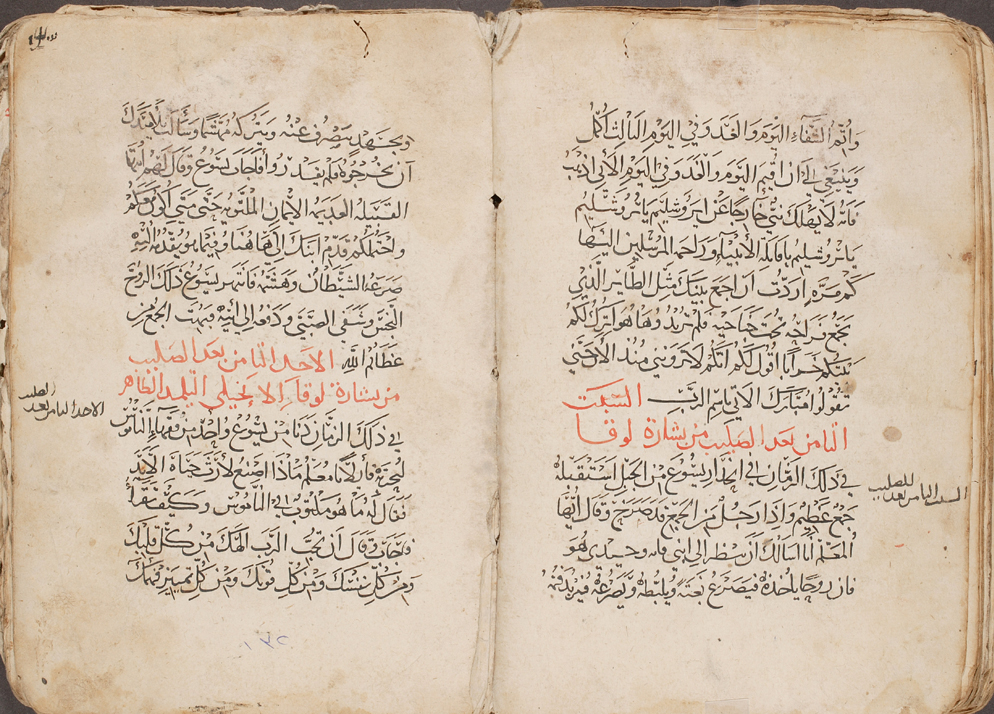 وأتم الشفاء اليوم والغد وفي اليوم الثالث اكمل
وينبغي لي ان اقيم اليوم والغد وفي اليوم الآتي اذهب
فانه لا يهلك نبي خارجًا عن ايروشليم ياروشليم
ياروشليم يا قاتلة الأنبياء وراجمة المرسلين اليها
كم مرة اردت ان اجمع بنيك مثل الطاير الذي
يجمع فراخه تحت جناحيه فلم تريدوا ها هوا اترك لكم
بيتكم خرابا اقول لكم انكم لا تروني منذ الان حتى
تقولوا مبارك الاتي باسم الرب السبت
الثامن بعد الصليب من بشارة لوقا
في ذلك الزمان في انحدار يسوع من الجبل استقبله
جمع عظيم واذا رجل من الجمع قد صرخ وقال ايها
المعلم انا اسالك ان تنظر الى ابني فانه وحيدي هو
فان روحا ياخذه فيصرع بغتة ويلبطه ويصرعه فيزبد فمه
السبت الثامن بعد الصليب
وبجهد ينصرف عنه ويتركه مهشما وسألت تلاميذك
أن يخرجوه فلم يقدروا فاجاب يسوع وقال لهم ايها
القبيلة العديمه الايمان الملتويه حتى متى أكون معكم
واحتملكم قدم ابنك الي هاهنا وفيما هو يقدمه اليه
صرعه الشيطان وهشمه فانتهر يسوع ذلك الروح
النجس وشفى الصبي ودفعه إلى أبيه فبهت الجمع من
عظائم الله الاحد الثامن بعد الصليب
من بشارة لوقا الانجيلي التلميذ الطاهر
في ذلك الزمان دنا من يسوع واحد من فقهاء الناموس
ليجربه قايلا يا معلم ماذا اصنع لأرث حياة الابد
فقال له ما هو مكتوب في الناموس وكيف تقرأ
فاجاب وقال أن تحب الرب الهك من كل قلبك
ومن كل نفسك ومن كل قوتك ومن كل تمييز فهمك
الاحد الثامن بعد الصليب